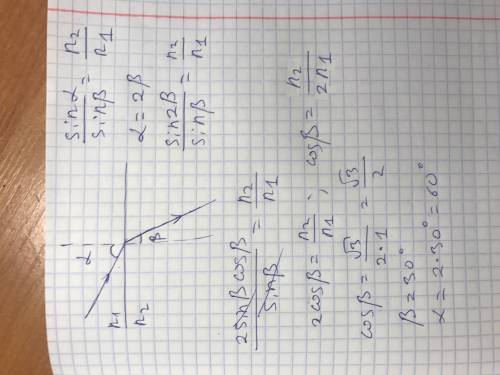 α
β
n1
n2
sinα/sinβ = n2/n1
α = 2β
sin2β/sinβ = n2/n1
2sinβcosβ/sinβ = n2/n1
2cosβ = n2/n1 ; cosβ = n2/2n1
cosβ = √3/2·1 = √3/2
β = 30°
α = 2·30° = 60°